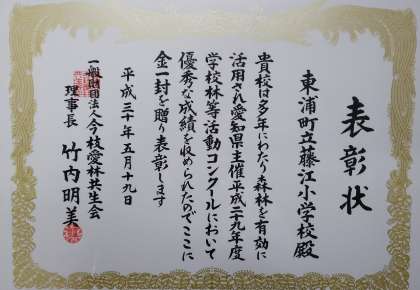 表彰状
東浦町立藤江小学校殿
貴校は多年にわたり森林を有効に
活用され愛知県主催平成二十九年度
学校林等活動コンクールにおいて
優秀な成績を収められたのでここに
金一封を贈り表彰します
平成三十年五月十九日
一般財団法人今枝愛林共生会
理事長 竹内明美